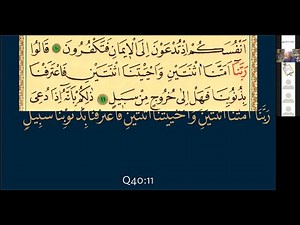 اَنْفُسَكُمْ اِذْ تُدْعَوْنَ اِلَى الْا۪يمَانِ فَتَكْفُرُونَ ۝١٠ قَالُوا
رَبَّنَٓا اَمَتَّنَا اثْنَتَيْنِ وَاَحْيَيْتَنَا اثْنَتَيْنِ فَاعْتَرَفْنَا
بِذُنُوبِنَا فَهَلْ اِلٰى خُرُوجٍ مِنْ سَب۪يلٍ ۝١١ ذٰلِكُمْ بِاَنَّهُٓ اِذَا دُعِيَ
رَبَّنَا اَمَتَّنَا اثْنَتَيْنِ وَاَحْيَيْتَنَا اثْنَتَيْنِ فَاعْتَرَفْنَا بِذُنُوبِنَا سَبِيلٍ
Q40:11